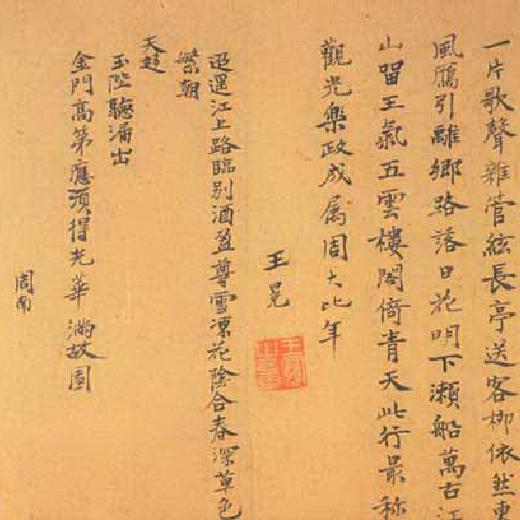 一片歌聲雜管絃長亭送客柳依然東
風鴈引離鄉路落日花明下瀨船萬古江
山留王氣五雲樓閣倚青天此行最称
觀光樂政成周大比年
王冕
迢遞江上路臨別酒盈尊雪凍花陰合春深草色
繁朝
天趍
玉陛聽漏出
金門高第應須得光華滿故園
周南